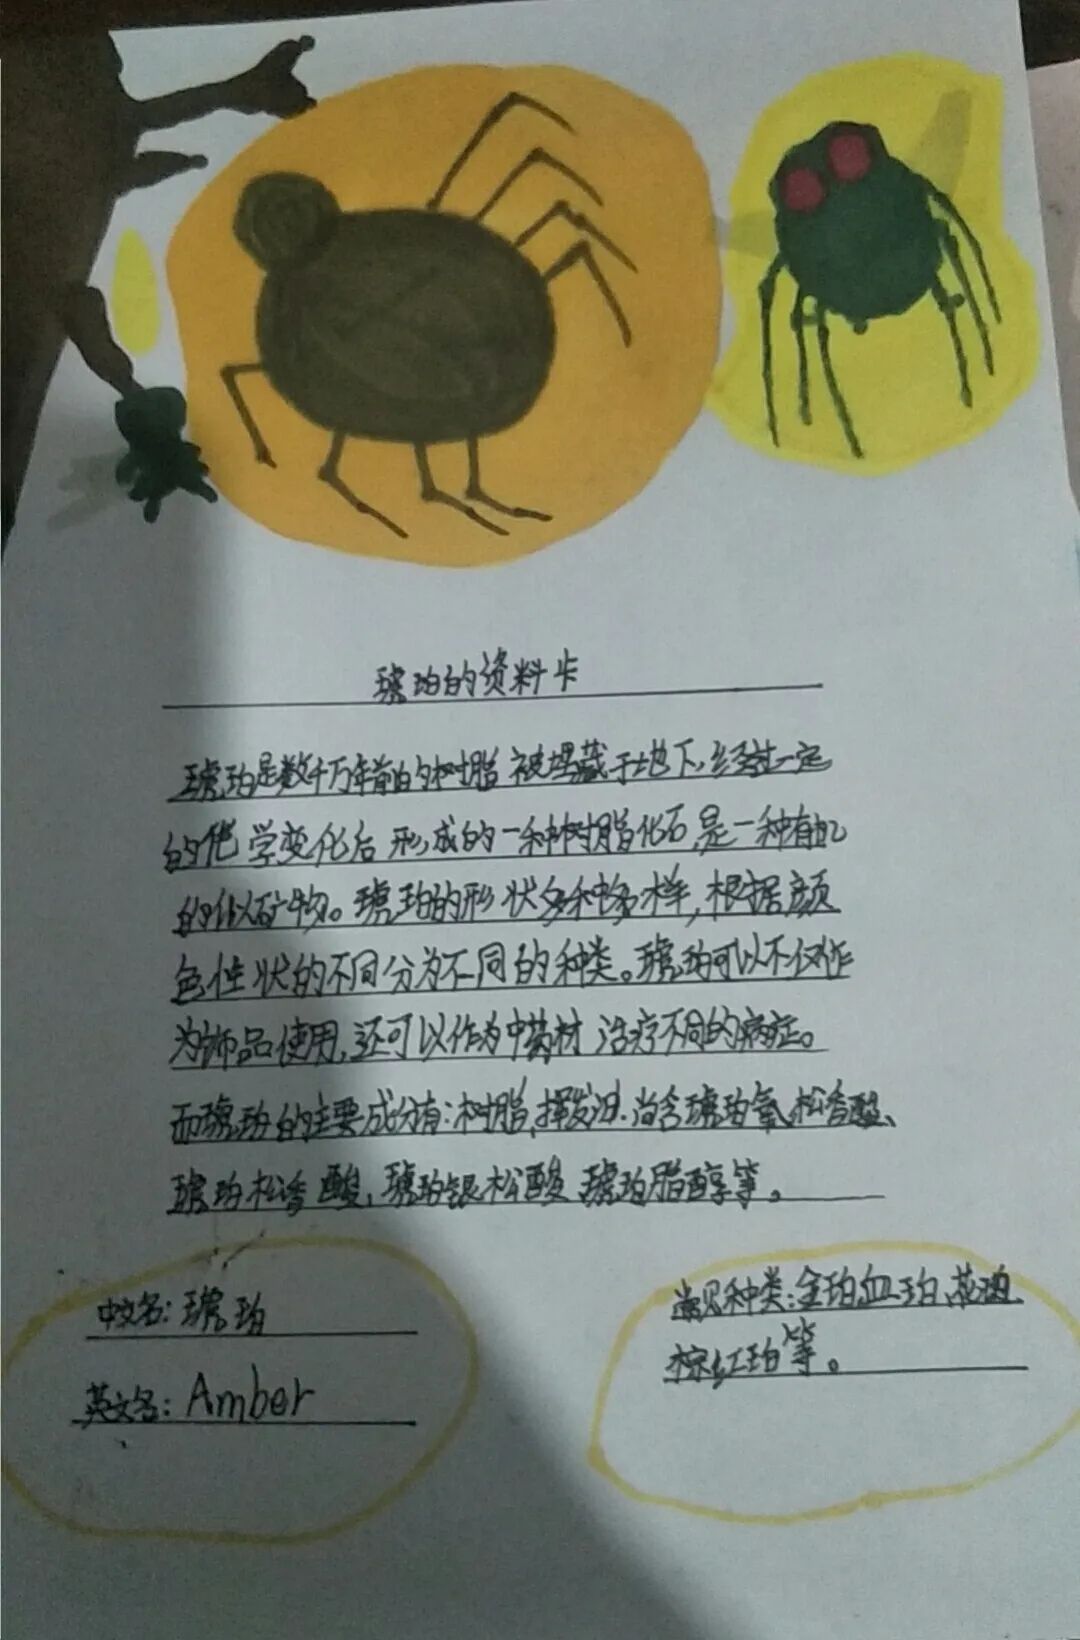 琥珀的资料卡
琥珀是数千万年前的树脂被埋藏于地下,经过一定
的化学变化后形成的一种树脂化石,是一种有机
的似矿物。琥珀的形状多种多样,根据颜
色性状的不同分为不同的种类。琥珀可以不仅作
为饰品使用,还可以作为中药材治疗不同的病症。
而琥珀的主要成分有:树脂,挥发油.尚含琥珀氧,松香酸、
琥珀松香酸,琥珀银松酸、琥珀脂醇等。
中文名:琥珀
英文名:Amber
常见种类:金珀,血珀,花珀,
棕红珀等。